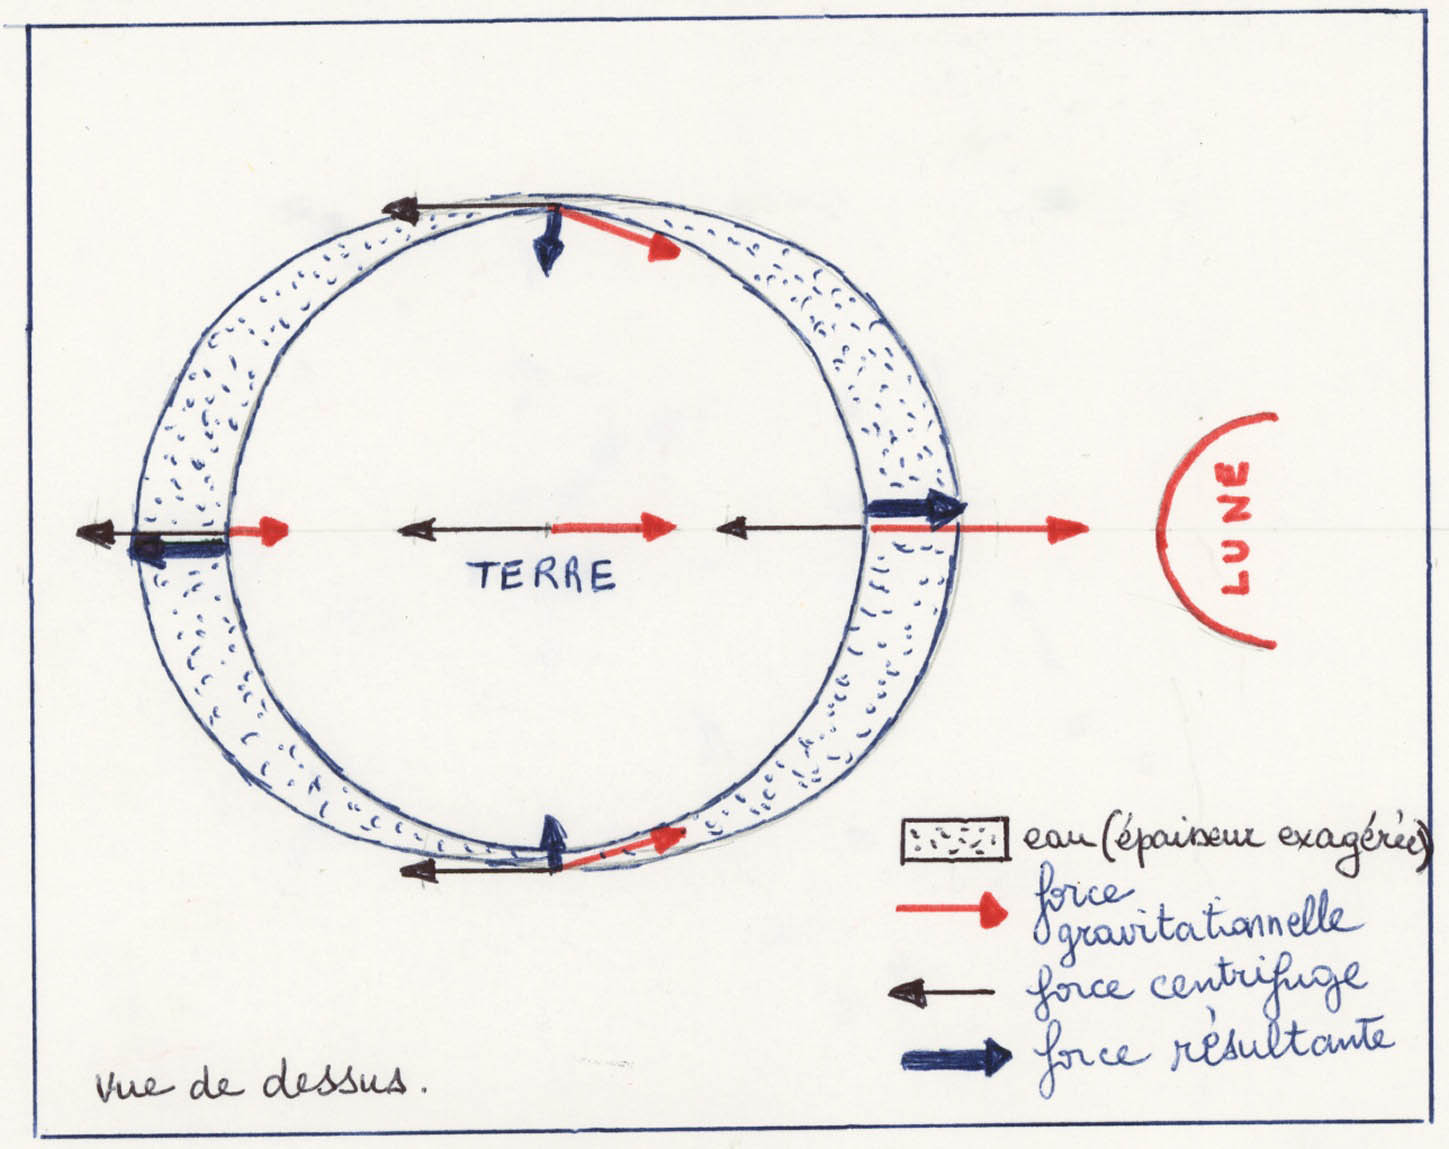 TERRE
LUNE
eau (épaisseur exagérée)
force
gravitationnelle
force centrifuge
force résultante
vue de dessus.